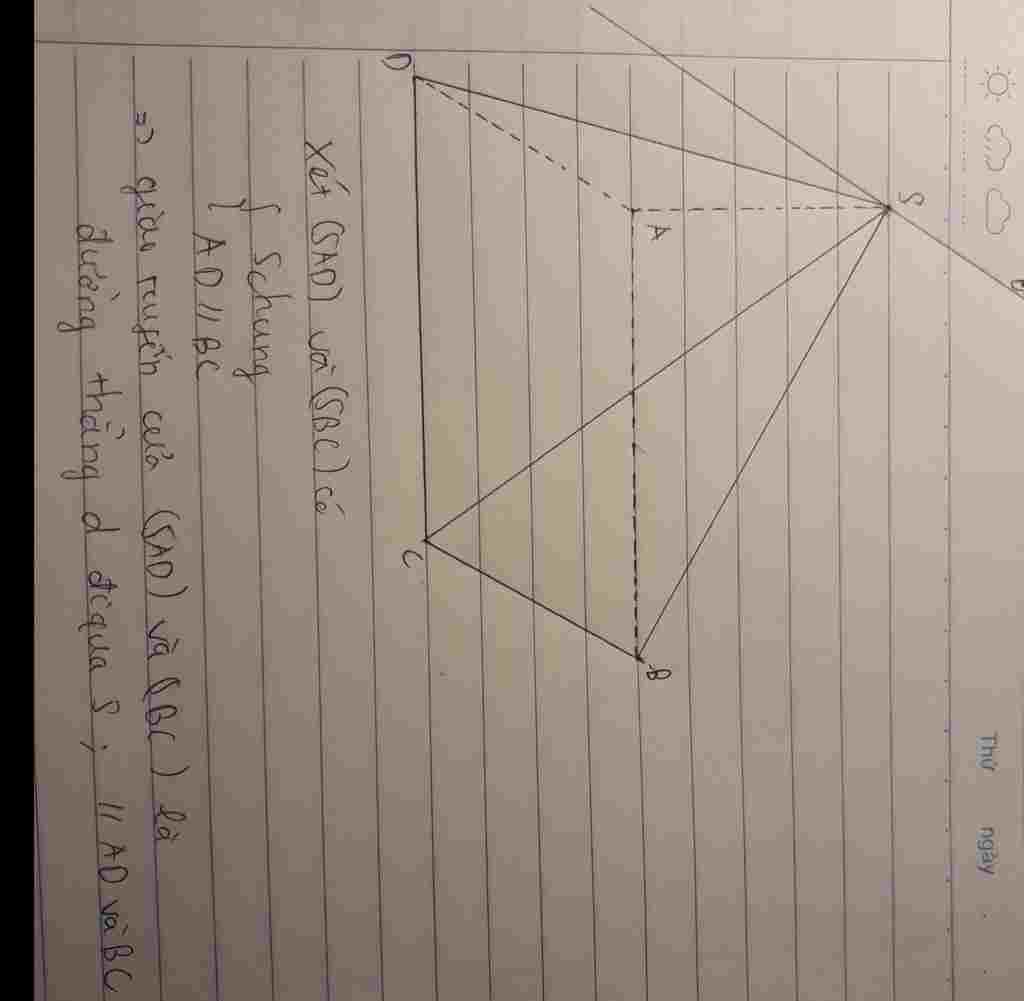 Thứ ngày
d
S
A
B
D
C
Xét (SAD) và (SBC) có
{ S chung
AD // BC
=> giao tuyến của (SAD) và (SBC) là
đường thẳng d đi qua S ; // AD và BC